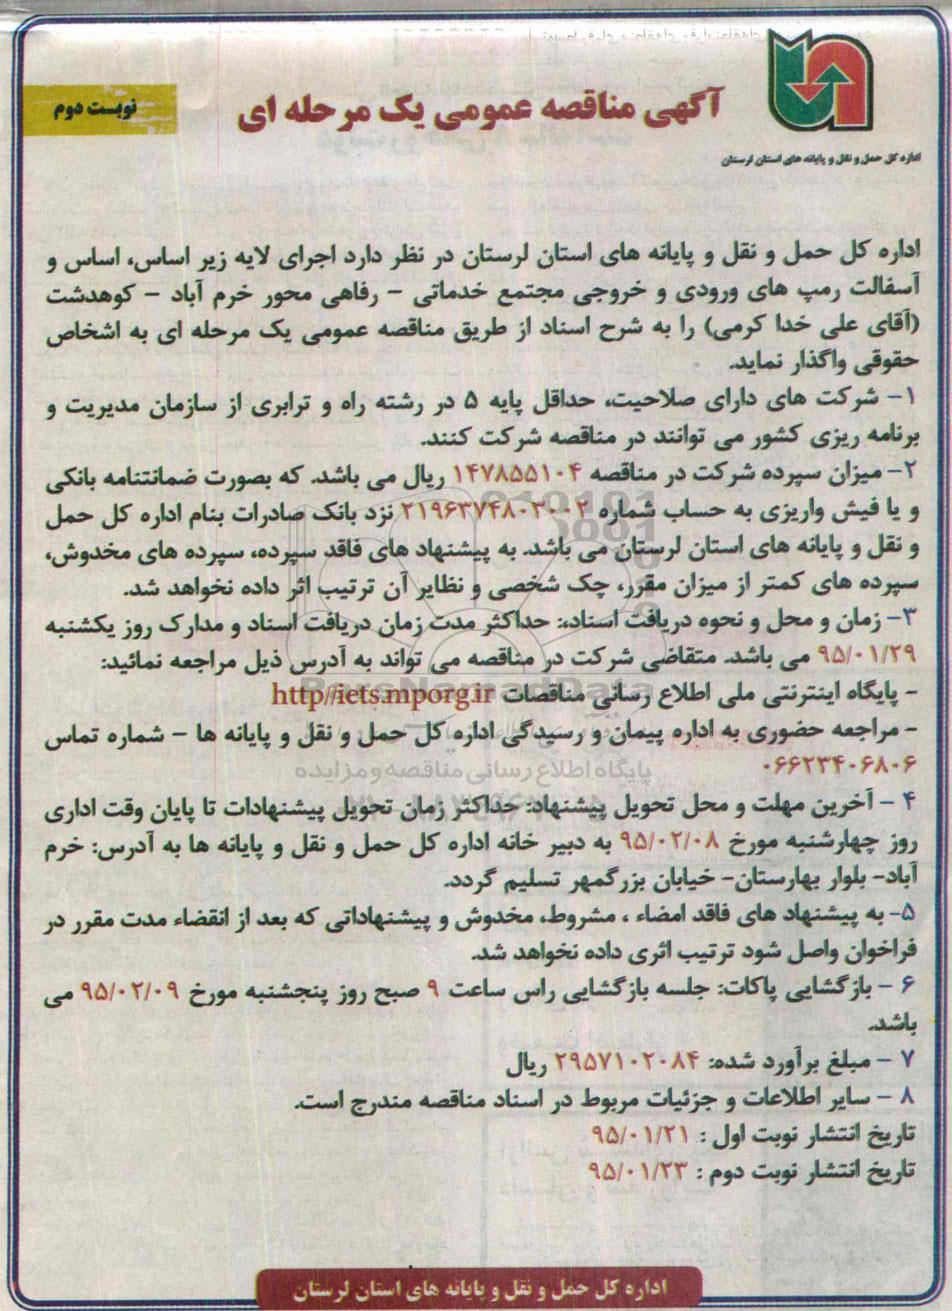 آگهی مناقصه عمومی یک مرحله ای
نوبست دوم
اداره کل حمل و نقل و پایانه های استان لرستان
اداره کل حمل و نقل و پایانه های استان لرستان در نظر دارد اجرای لایه زیر اساس، اساس و
آسفالت رمپ های ورودی و خروجی مجتمع خدماتی - رفاهی محور خرم آباد - کوهدشت
(آقای علی خدا کرمی) را به شرح اسناد از طریق مناقصه عمومی یک مرحله ای به اشخاص
حقوقی واگذار نماید.
۱- شرکت های دارای صلاحیت، حداقل پایه ۵ در رشته راه و ترابری از سازمان مدیریت و
برنامه ریزی کشور می توانند در مناقصه شرکت کنند.
۲- میزان سپرده شرکت در مناقصه ۱۴۷۸۵۵۱۰۴ ریال می باشد. که بصورت ضمانتنامه بانکی
و یا فیش واریزی به حساب شماره ۲۱۹۶۳۷۴۸۰۳۰۰۲ نزد بانک صادرات بنام اداره کل حمل
و نقل و پایانه های استان لرستان می باشد. به پیشنهاد های فاقد سپرده، سپرده های مخدوش،
سپرده های کمتر از میزان مقرر، چک شخصی و نظایر آن ترتیب اثر داده نخواهد شد.
۳- زمان و محل و نحوه دریافت اسناد،: حداکثر مدت زمان دریافت اسناد و مدارک روز یکشنبه
۹۵/۰۱/۲۹ می باشد. متقاضی شرکت در مناقصه می تواند به آدرس ذیل مراجعه نمائید:
- پایگاه اینترنتی ملی اطلاع رسانی مناقصات http//iets.mporg.ir
- مراجعه حضوری به اداره پیمان و رسیدگی اداره کل حمل و نقل و پایانه ها - شماره تماس
۰۶۶۲۳۴۰۶۸۰۶
پایگاه اطلاع رسانی مناقصه و مزایده
۴ - آخرین مهلت و محل تحویل پیشنهاد: حداکثر زمان تحویل پیشنهادات تا پایان وقت اداری
روز چهارشنبه مورخ ۹۵/۰۲/۰۸ به دبیر خانه اداره کل حمل و نقل و پایانه ها به آدرس: خرم
آباد- بلوار بهارستان- خیابان بزرگمهر تسلیم گردد.
۵- به پیشنهاد های فاقد امضاء ، مشروط، مخدوش و پیشنهاداتی که بعد از انقضاء مدت مقرر در
فراخوان واصل شود ترتیب اثری داده نخواهد شد.
۶ - بازگشایی پاکات: جلسه بازگشایی راس ساعت ۹ صبح روز پنجشنبه مورخ ۹۵/۰۲/۰۹ می
باشد.
۷ - مبلغ برآورد شده: ۲۹۵۷۱۰۲۰۸۴ ریال
۸ - سایر اطلاعات و جزئیات مربوط در اسناد مناقصه مندرج است.
تاریخ انتشار نوبت اول : ۹۵/۰۱/۲۱
تاریخ انتشار نوبت دوم : ۹۵/۰۱/۲۳
اداره کل حمل و نقل و پایانه های استان لرستان